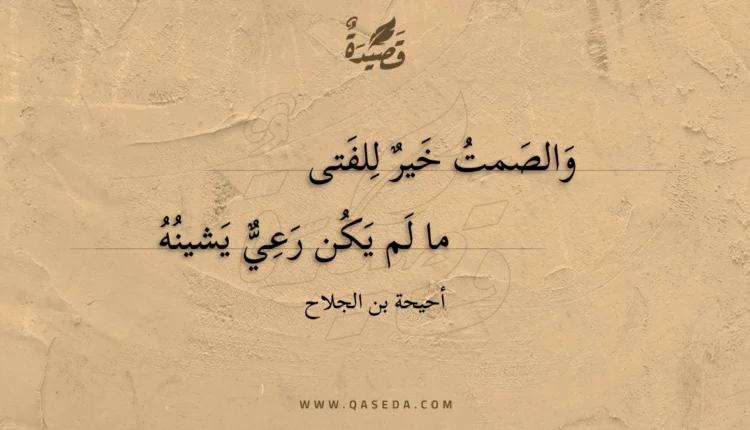 قَصِيدَةٌ
وَالصَمتُ خَيرٌ لِلفَتى
ما لَم يَكُن رَعِيٌّ يَشينُهُ
أحيحة بن الجلاح
WWW.QASEDA.COM